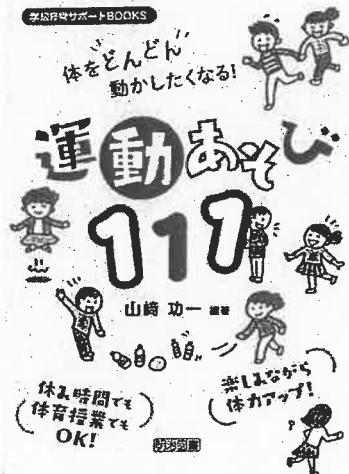 学級経営サポートBOOKS
体をどんどん
動かしたくなる!
運動あそび
111
山﨑 功一 編著
休み時間でも
体育授業でも
OK!
楽しみながら
体力アップ!
明治図書